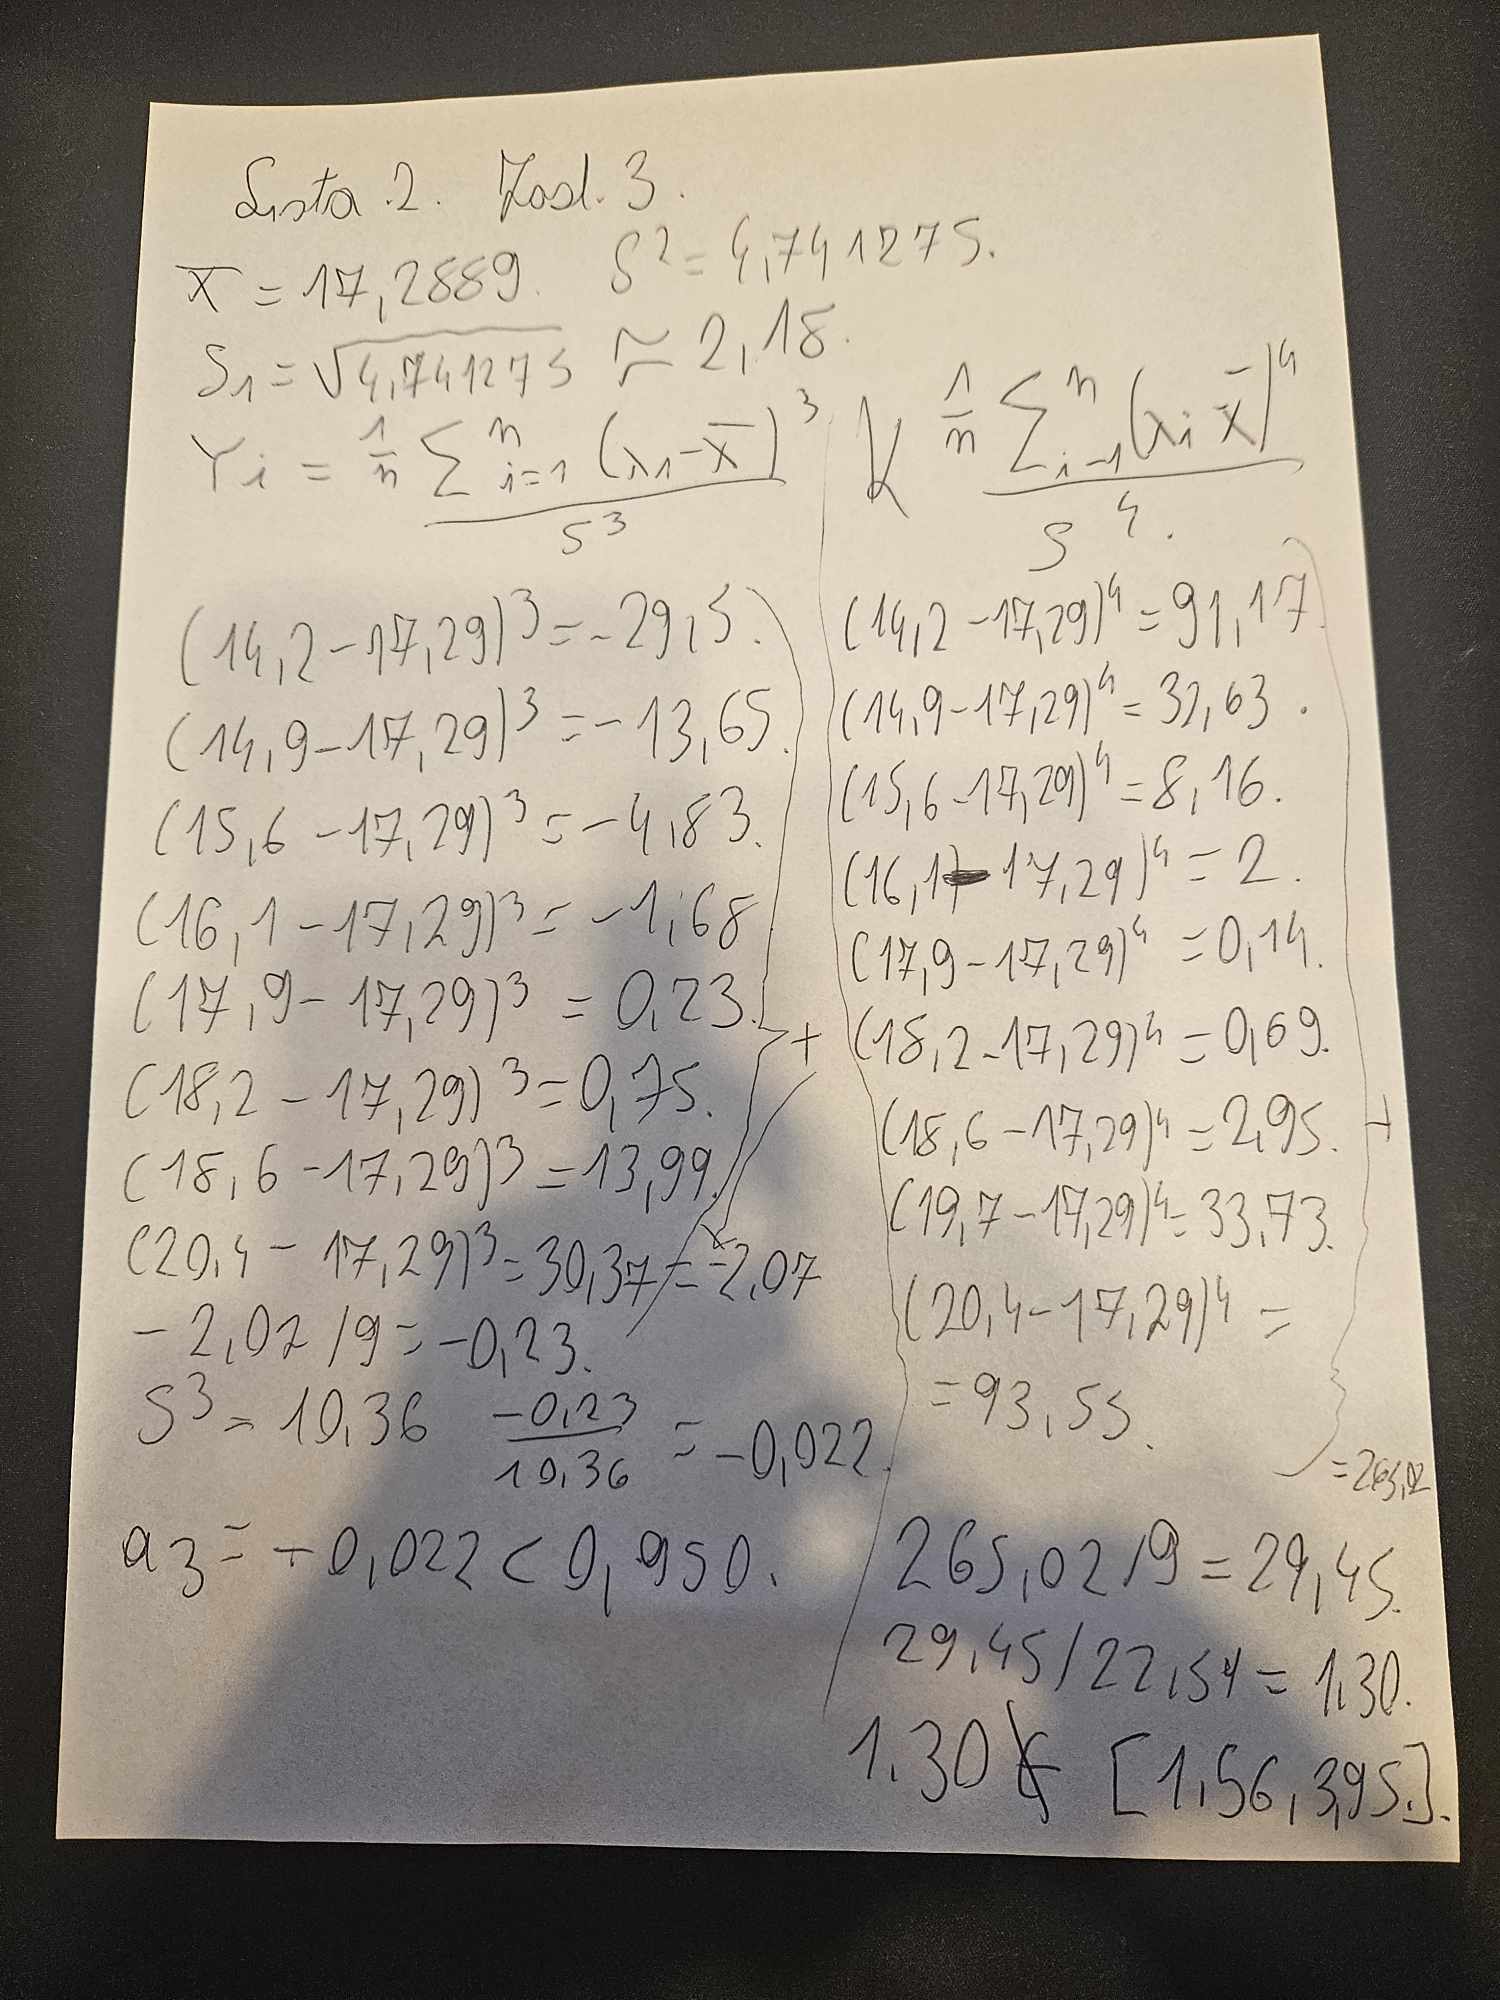 Lista 2. Zad. 3.
x̄ = 17,2889. S² = 4,741275.
S₁ = √4,741275 ≈ 2,18.
γi = 1/n Σⁿi=1 (x1-x̄)³ / S³
K 1/n Σⁿi-1 (xi x̄)⁴ / S⁴.
(14,2-17,29)³ = -29,5.
(14,9-17,29)³ = -13,65.
(15,6-17,29)³ = -4,83.
(16,1-17,29)³ = -1,68
(17,9-17,29)³ = 0,23.
(18,2-17,29)³ = 0,75.
(18,6-17,29)³ = 13,99.
+
(20,4-17,29)³ = 30,37 = -2,07
-2,07/9 = -0,23.
S³ = 10,36 -0,23/10,36 = -0,022.
a3 = -0,022 < 0,950.
(14,2-17,29)⁴ = 91,17.
(14,9-17,29)⁴ = 32,63.
(15,6-17,29)⁴ = 8,16.
(16,1-17,29)⁴ = 2.
(17,9-17,29)⁴ = 0,14.
(18,2-17,29)⁴ = 0,69.
(18,6-17,29)⁴ = 2,95.
+
(19,7-17,29)⁴ = 33,73.
(20,4-17,29)⁴ =
= 93,55.
= 265,02
265,02/9 = 29,45.
29,45/22,54 = 1,30.
1,30 ∉ [1,56, 3,95.].